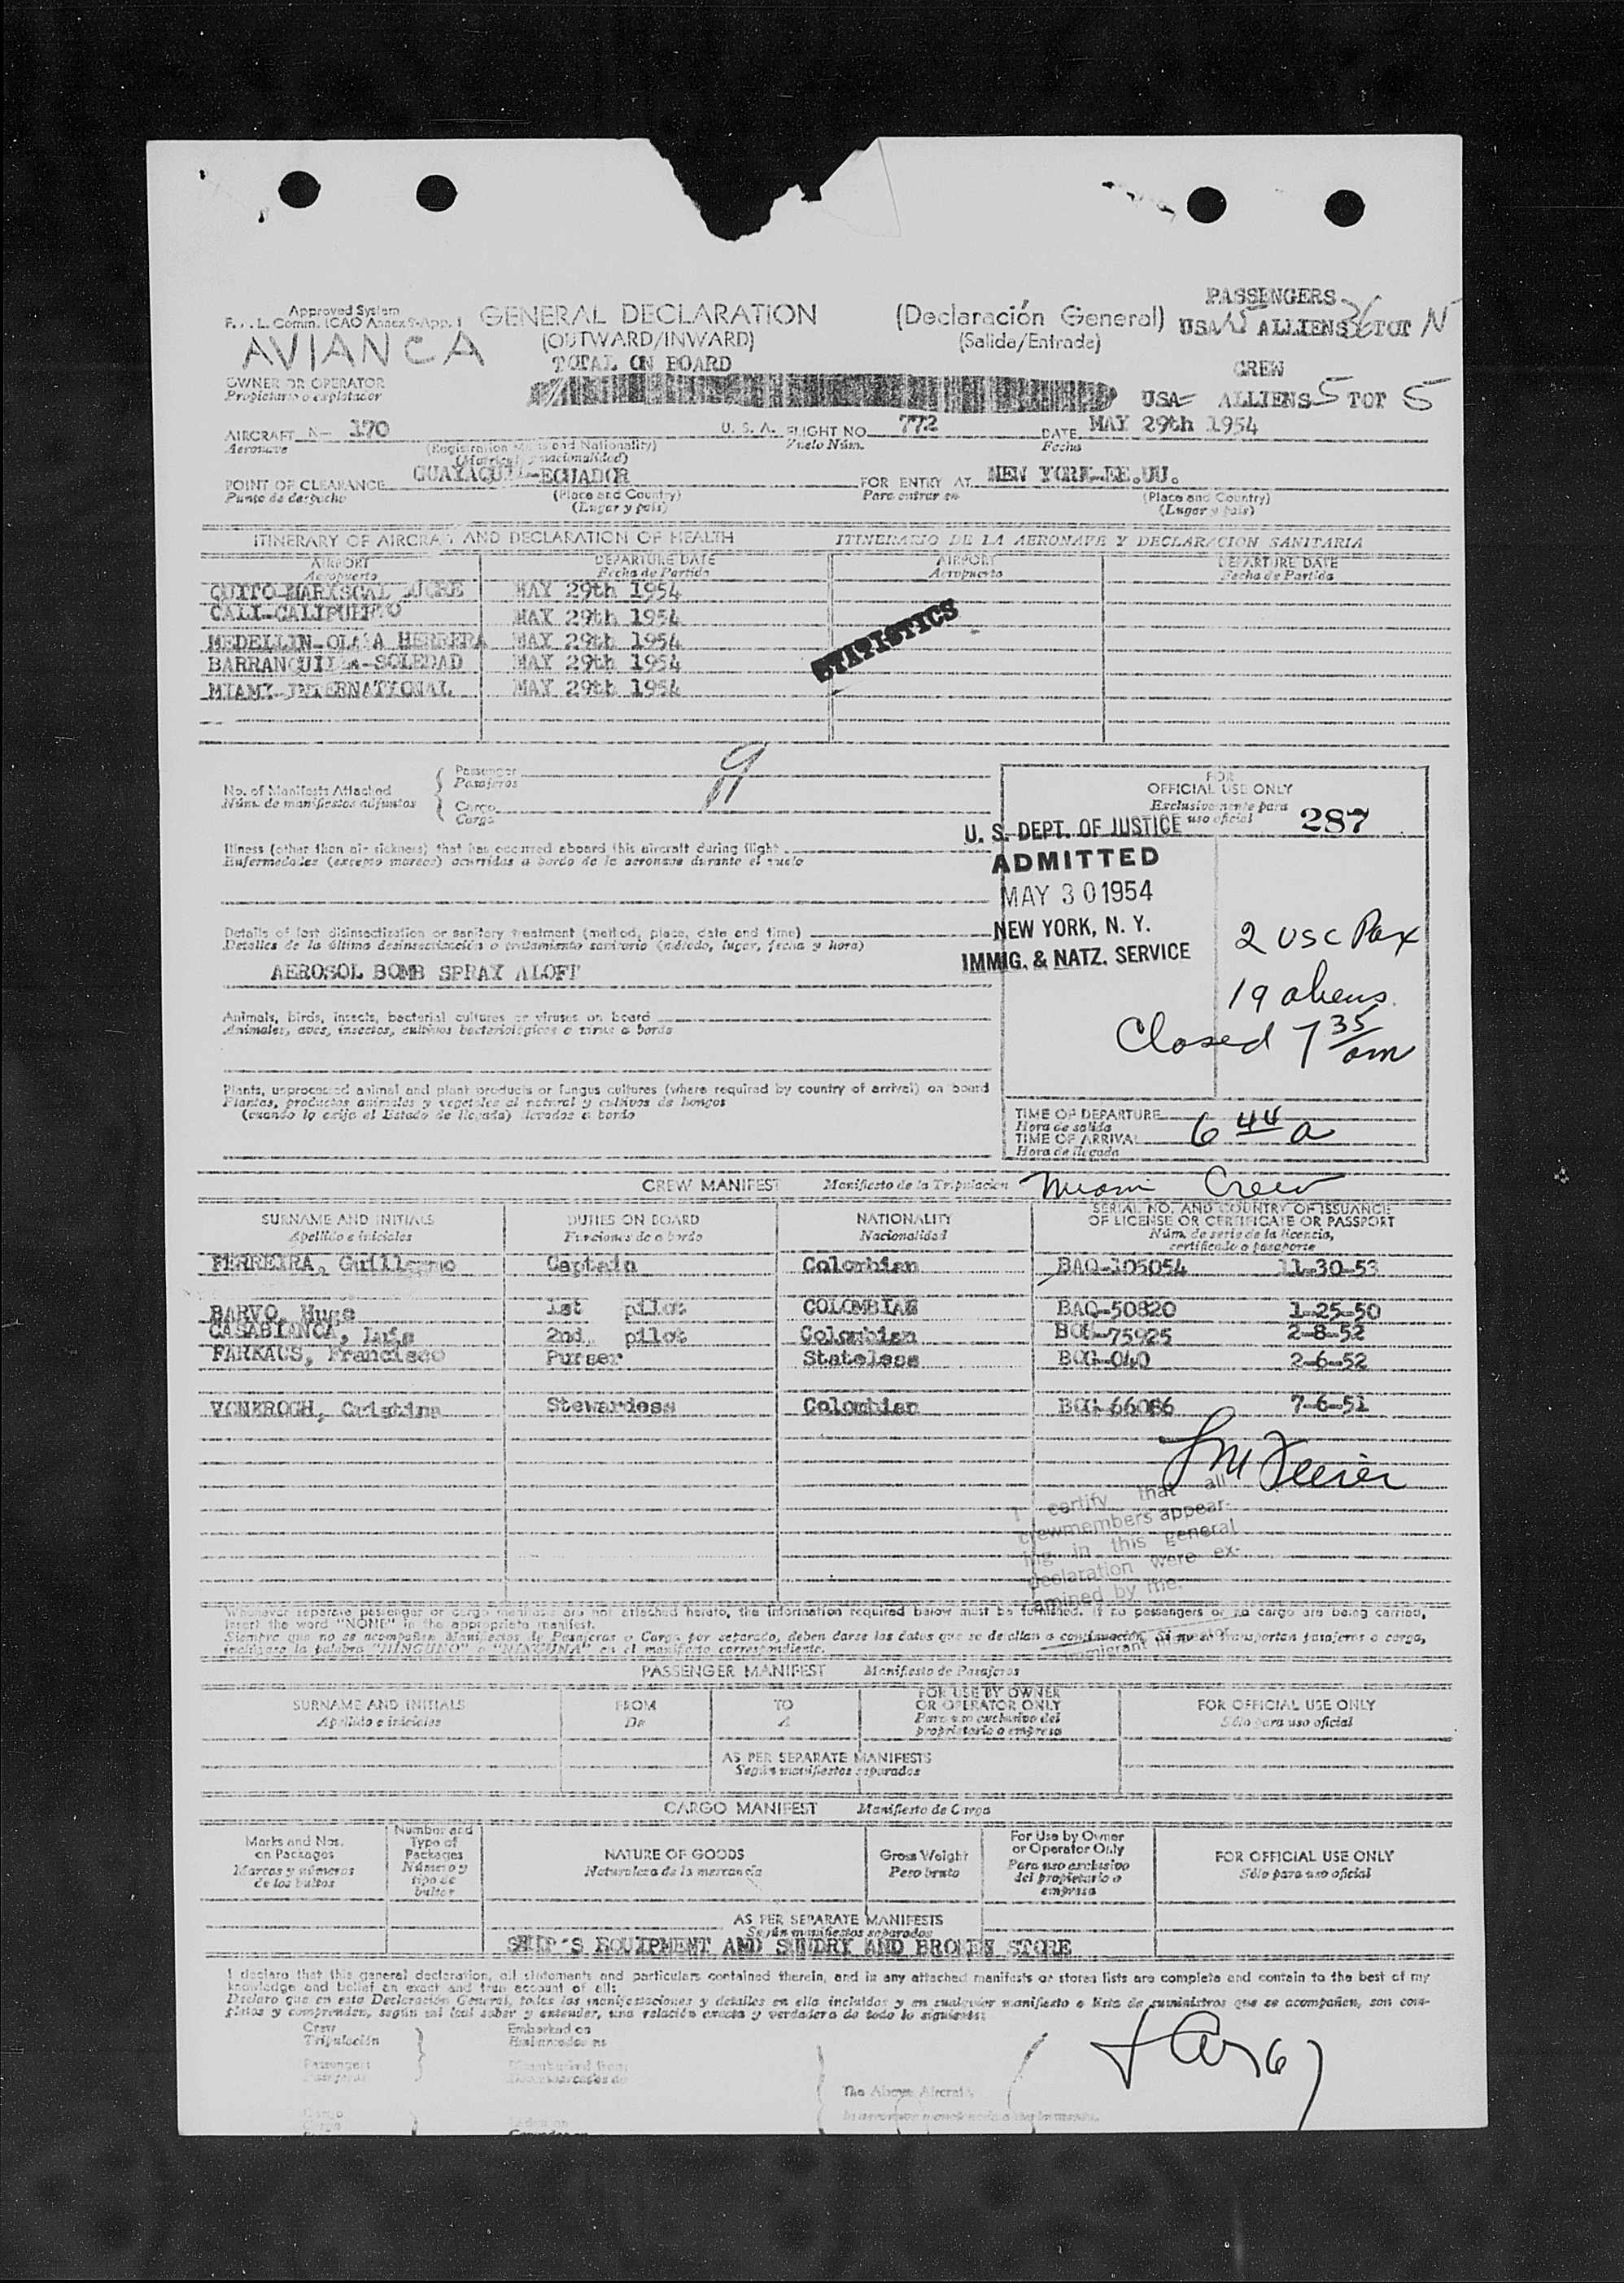 Approved System
Comm. ICAO Annex 9-App. 1
GENERAL DECLARATION
(Declaración General)
PASSENGERS
AVIANCA
(OUTWARD/INWARD)
(Salida/Entrada)
USA ALLIENS 36 TOT
TOTAL ON BOARD
CREW
OWNER OR OPERATOR
Propietario o explotador
USA- ALLIENS 5 TOT 5
AIRCRAFT N- 170 U. S. A. FLIGHT NO. 772 DATE MAY 29th 1954
Aeronave
Vuelo Núm.
Fecha
POINT OF CLEARANCE GUAYAQUIL-ECUADOR FOR ENTRY AT NEW YORK-EE.UU.
Punto de despacho
(Place and Country)
(Lugar y país)
Para entrar en
(Place and Country)
(Lugar y país)
ITINERARY OF AIRCRAFT AND DECLARATION OF HEALTH ITINERARIO DE LA AERONAVE Y DECLARACION SANITARIA
AIRPORT DEPARTURE DATE AIRPORT DEPARTURE DATE
Aeropuerto Fecha de Partida Aeropuerto Fecha de Partida
QUITO-MARISCAL SUCRE MAY 29th 1954
CALI-CALIPUERTO MAY 29th 1954
MEDELLIN-OLAYA HERRERA MAY 29th 1954
BARRANQUILLA-SOLEDAD MAY 29th 1954
MIAMI-INTERNATIONAL MAY 29th 1954
STATISTICS
No. of Manifests Attached
Núm. de manifiestos adjuntos
Passenger
Pasajeros
Cargo
Carga
9
FOR
OFFICIAL USE ONLY
Exclusivamente para
uso oficial
287
U. S. DEPT. OF JUSTICE
ADMITTED
MAY 30 1954
NEW YORK, N. Y.
IMMIG. & NATZ. SERVICE
2 USC Pax
19 aliens
Closed 7 35 am
Illness (other than air sickness) that has occurred aboard this aircraft during flight
Enfermedades (excepto mareos) ocurridas a bordo de la aeronave durante el vuelo
Details of last disinsectization or sanitary treatment (method, place, date and time)
Detalles de la última desinsectización o tratamiento sanitario (método, lugar, fecha y hora)
AEROSOL BOMB SPRAY ALOFT
Animals, birds, insects, bacterial cultures or viruses on board
Animales, aves, insectos, cultivos bacteriológicos o virus a bordo
Plants, unprocessed animal and plant products or fungus cultures (where required by country of arrival) on board
Plantas, productos animales y vegetales al natural y cultivos de hongos
(cuando lo exija el Estado de llegada) llevados a bordo
TIME OF DEPARTURE
Hora de salida
TIME OF ARRIVAL 6 44 a
Hora de llegada
CREW MANIFEST Manifiesto de la Tripulacion Miami Crew
SURNAME AND INITIALS DUTIES ON BOARD NATIONALITY SERIAL NO. AND COUNTRY OF ISSUANCE
OF LICENSE OR CERTIFICATE OR PASSPORT
Apellido e iniciales Funciones de a bordo Nacionalidad Núm. de serie de la licencia,
certificado o pasaporte
FERREIRA, Guillermo Captain Colombian BAQ-105054 11-30-53
BARVO, Hugo 1st pilot COLOMBIAN BAQ-50820 1-25-50
CASABIANCA, Luis 2nd. pilot Colombian BOG-75925 2-8-52
FARKAUS, Francisco Purser Stateless BOG-040 2-6-52
VONKROGH, Cristina Stewardess Colombian BOG-66086 7-6-51
I certify that all
crewmembers appear-
ing in this general
declaration were ex-
amined by me.
Immigrant Inspector
Whenever separate passenger or cargo manifests are not attached hereto, the information required below must be furnished. If no passengers or no cargo are being carried,
insert the word "NONE" in the appropriate manifest.
Siempre que no se acompañen Manifiestos de Pasajeros o Carga por separado, deben darse los datos que se detallan a continuación. Si no se transportan pasajeros o carga,
indíquese la palabra "NINGUNO" o "NINGUNA" en el manifiesto correspondiente.
PASSENGER MANIFEST Manifiesto de Pasajeros
SURNAME AND INITIALS FROM TO FOR USE BY OWNER
OR OPERATOR ONLY FOR OFFICIAL USE ONLY
Apellido e iniciales De A Para uso exclusivo del
propietario o empresa Sólo para uso oficial
AS PER SEPARATE MANIFESTS
Según manifiestos separados
CARGO MANIFEST Manifiesto de Carga
Marks and Nos.
on Packages
Marcas y números
de los bultos
Number and
Type of
Packages
Número y
tipo de
bultos
NATURE OF GOODS
Naturaleza de la mercancía
Gross Weight
Peso bruto
For Use by Owner
or Operator Only
Para uso exclusivo
del propietario o
empresa
FOR OFFICIAL USE ONLY
Sólo para uso oficial
AS PER SEPARATE MANIFESTS
Según manifiestos separados
SHIP'S EQUIPMENT AND SUNDRY AND BROKEN STORE
I declare that this general declaration, all statements and particulars contained therein, and in any attached manifests or stores lists are complete and contain to the best of my
knowledge and belief an exact and true account of all:
Declaro que en esta Declaración General, todas las manifestaciones y detalles en ella incluidos y en cualquier manifiesto o lista de suministros que se acompañen, son com-
pletos y comprenden, según mi leal saber y entender, una relación exacta y verdadera de todo lo siguiente:
Crew
Tripulación
Embarked on
Embarcados en
Passengers
Pasajeros
Disembarked from
Desembarcados de
The Above Aircraft.
Cargo
Carga